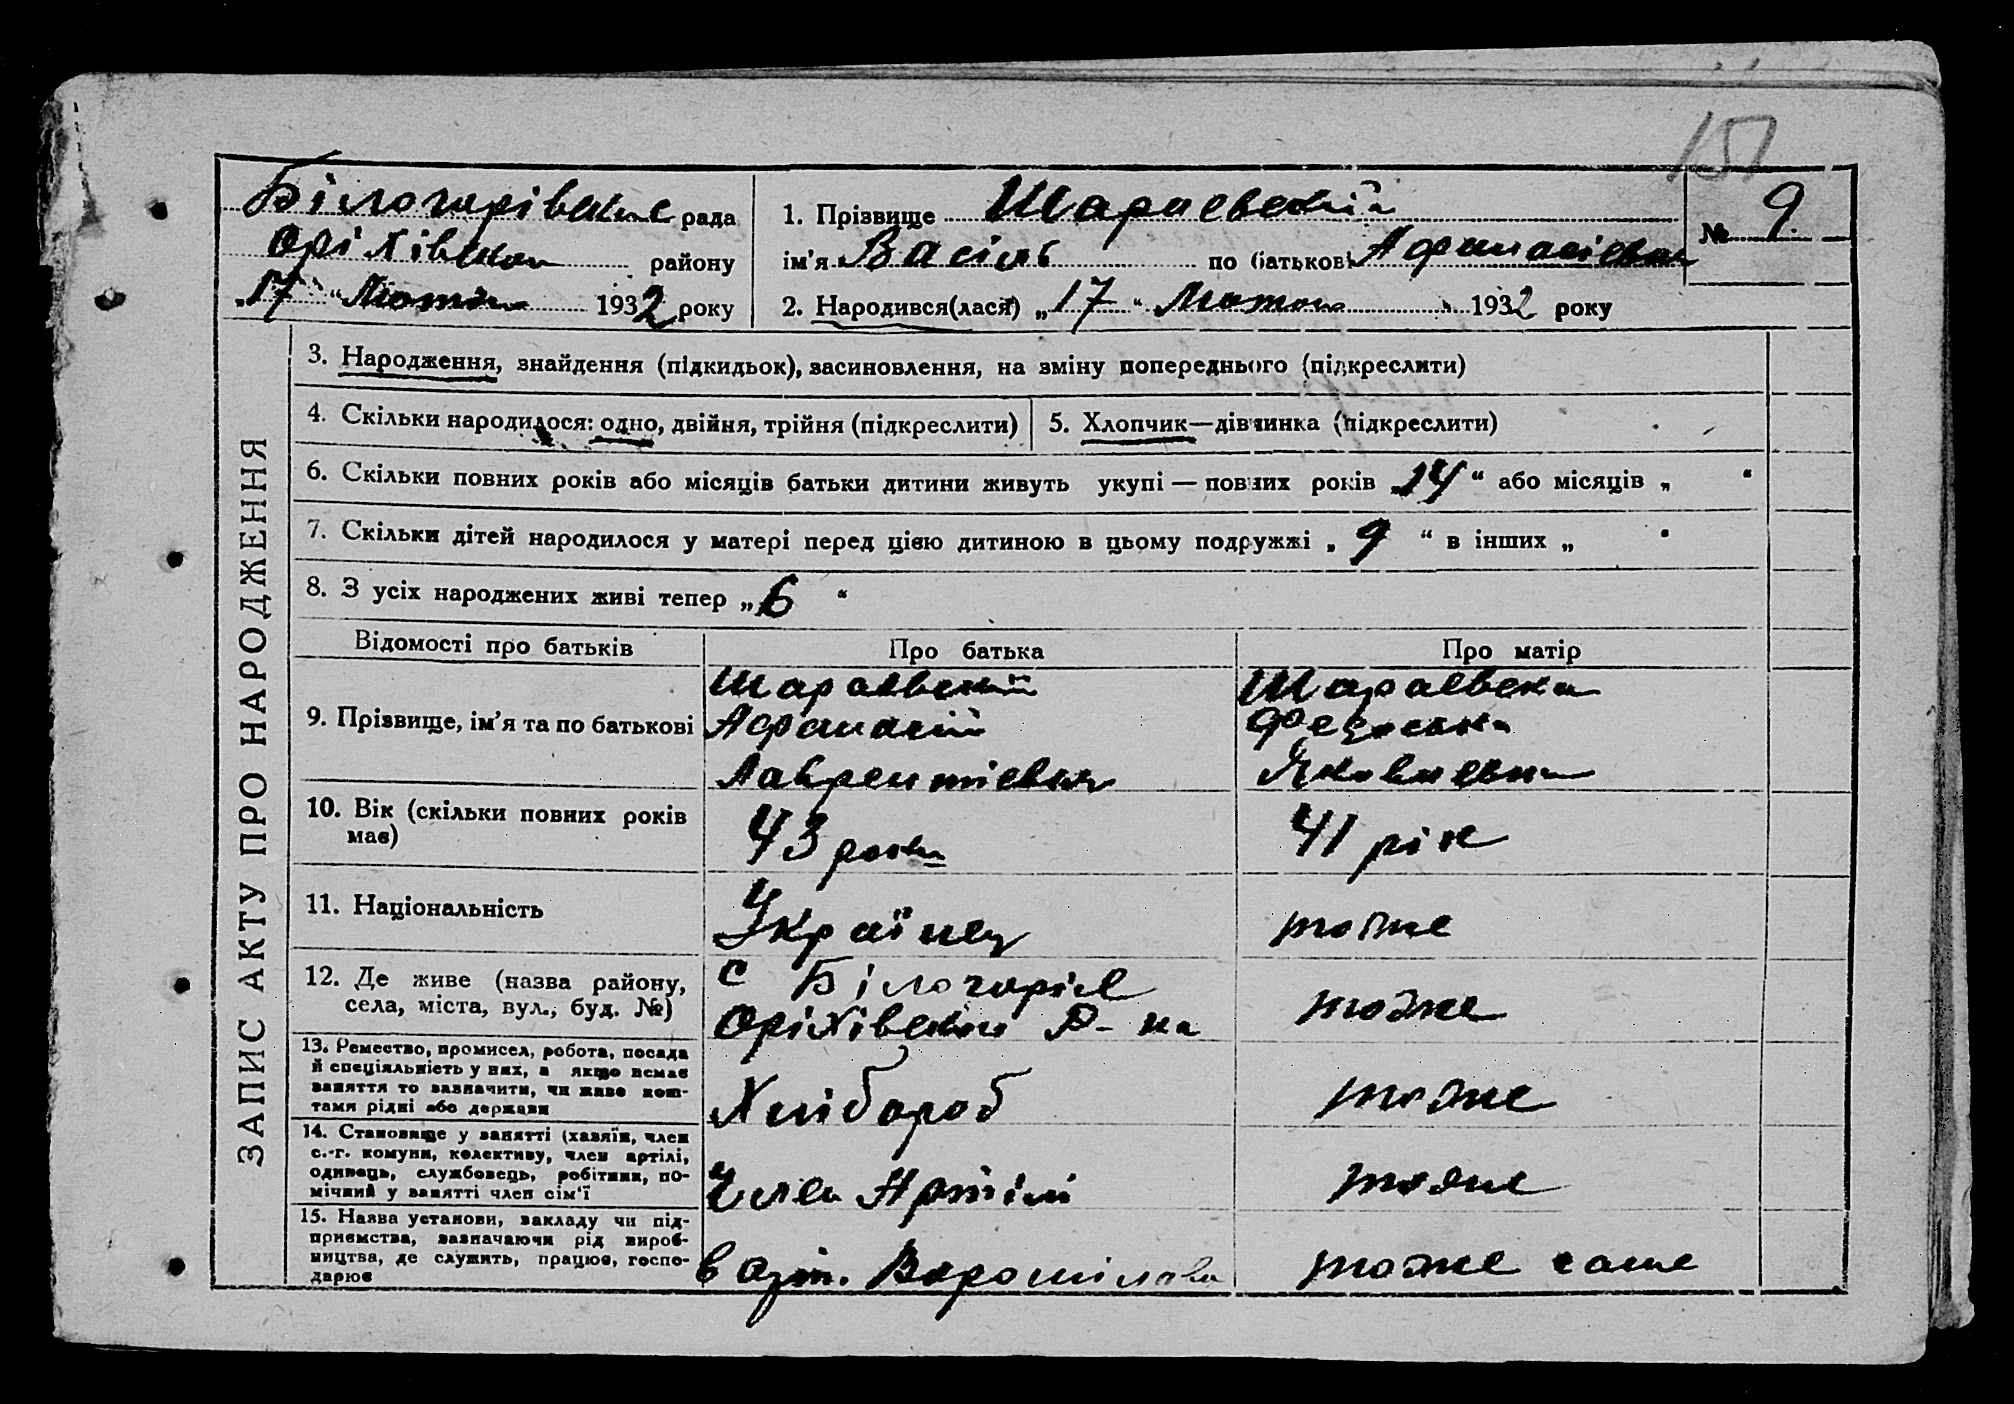 151
Білогорівське рада
Оріхівськ району
„17“ Лютого 1932 року
1. Прізвище Шараевский
ім'я Васіль по батькові Афанасіевич
№ 9
2. Народився(лася) „17“ Лютого 1932 року
ЗАПИС АКТУ ПРО НАРОДЖЕННЯ
3. Народження, знайдення (підкидьок), засиновлення, на зміну попереднього (підкреслити)
4. Скільки народилося: одно, двійня, трійня (підкреслити)
5. Хлопчик—дівчинка (підкреслити)
6. Скільки повних років або місяців батьки дитини живуть укупі — повних років „14“ або місяців „ “
7. Скільки дітей народилося у матері перед цією дитиною в цьому подружжі „9“ в інших „ “
8. З усіх народжених живі тепер „6“
Відомості про батьків
Про батька
Про матір
9. Прізвище, ім'я та по батькові
Шараевский
Афанасій
Лаврентіевич
Шараевска
Феодосия
Яковлевна
10. Вік (скільки повних років
має)
43 роки
41 рік
11. Національність
Українец
тоже
12. Де живе (назва району,
села, міста, вул., буд. №)
с Білогоріе
Оріхівского Р-на
тоже
13. Ремество, промисел, робота, посада
й спеціяльність у них, а якщо немає
заняття то зазначити, чи живе кош-
тами рідні або держави
Хлібороб
тоже
14. Становище у занятті (хазяїн, член
с.-г. комуни, колективу, член артілі,
одинець, службовець, робітник, по-
мічний у занятті член сім'ї
Член Артілі
тоже
15. Назва установи, закладу чи під-
приємства, зазначаючи рід вироб-
ництва, де служить, працює, госпо-
дарює
в арт. Ворошілова
тоже саме